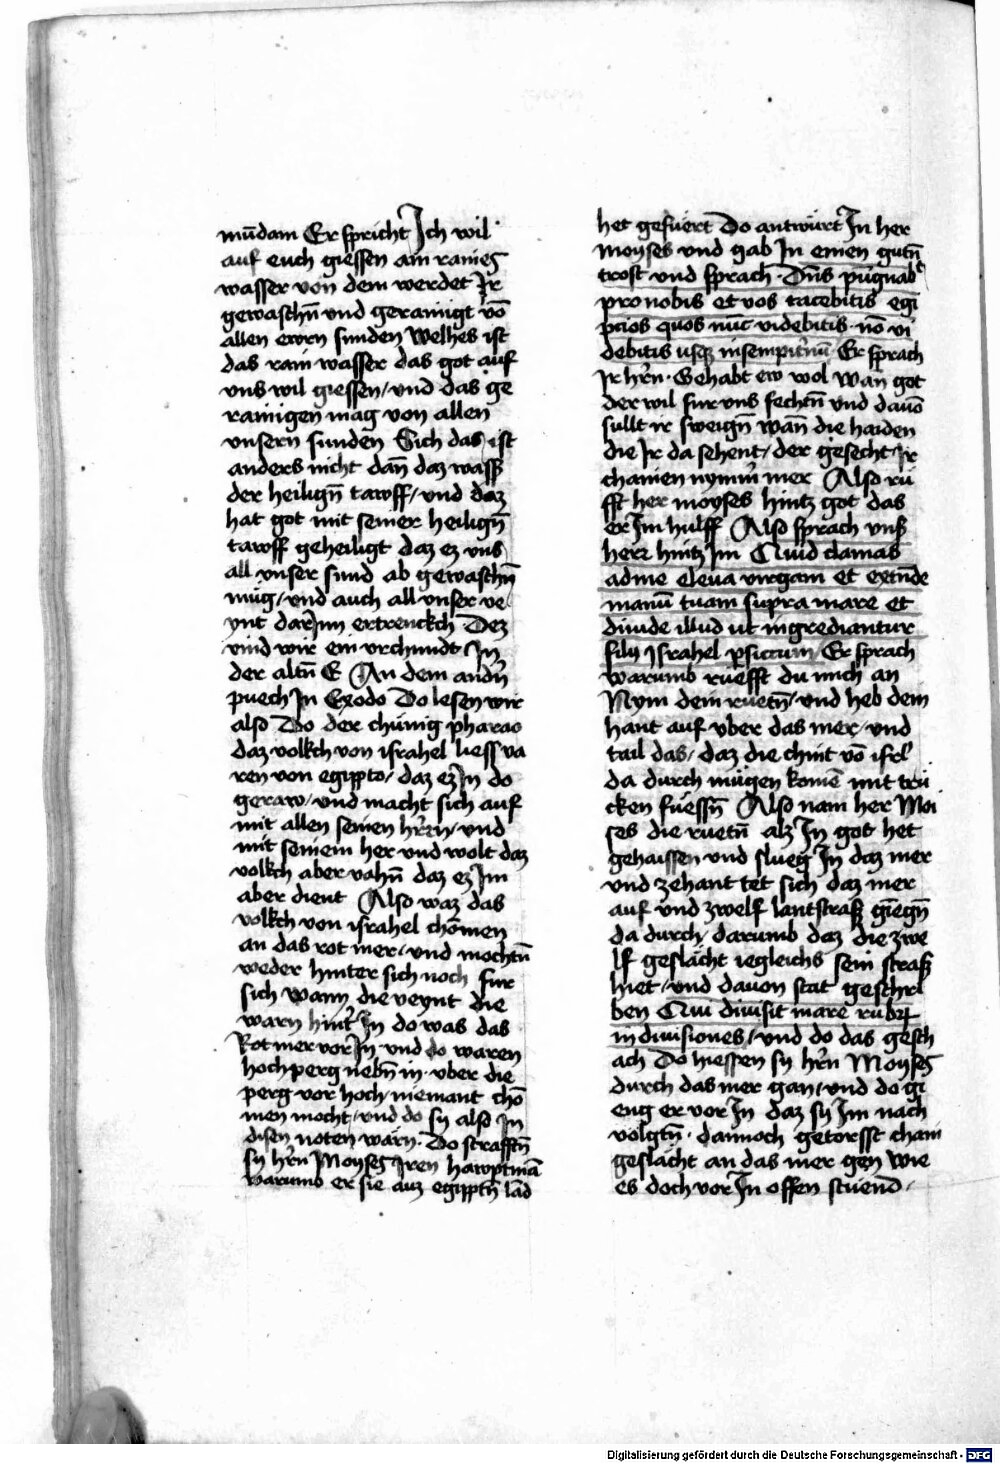 mūdam Er spricht Ich wil
auf euch giessen ain raines
wasser von dem werdet Ir
gewaschn̄ und gerainigt vō
allen ewrn sunden Welhes ist
das rain wasser das got auf
vns wil giessen / vnd das ge
rainigen mag von allen
vnsern sunden Sich das ist
anders nicht dan̄ daz wass̄
der heilign̄ tawff / vnd daz
hat got mit seiner heilign̄
tawff geheiligt daz ez vns
all vnser sund ab gewaschn̄
müg / vnd auch all vnser ve
ynt dar Inn ertrenckch Dez
vind wir ein vrchundt In
der altn̄ E An dem andn̄
puech In Exodo Do lesen wir
also Do der chünig pharao
daz volkch von israhel liess va
ren von egippto / daz ez In do
geraw / vnd macht sich auf
mit allen seinen hr̄rn / vnd
mit seinem her vnd wolt daz
volkch aber vahn̄ daz ez Im
aber dient Also waz das
volkch von israhel chōmen
an das rot mer / vnd mochtn̄
weder hinter sich noch fur
sich Wann die veynt die
warn hint̄ In do was das
Rot mer vor In vnd do waren
hoch perg nebn̄ in vber die
perg vor hoch niemant chō
men mocht / vnd do sy also In
disen noten warn. Do strafftn̄
sy hr̄n Moyses Iren hawptmā
warumb er sie auz egipptn̄ lād
het gefuert Do antwürt̄ In her
moyses vnd gab In einen gutn̄
trost vnd sprach Dn̄s pūgnabᵗ
pro nobis et vos tacebitis egi
pcios quos nūc videbitis nō vi
debitis usqz insempitn̄ū Er sprach
Ir hr̄n Gehabt ew wol wan̄ got
der wil fur vns fechtn̄ vnd davō
sullt ir sweign̄ wan̄ die haiden
die Ir da sehent / der gesecht Ir
chainen nymm̄ mer Also rü
fft her moyses hintz got das
er Im hulff Also sprach vns̄
herr hintz Im Quid clamas
ad me eleua virgam et extn̄de
manū tuam supra mare et
diuide illud ut ingrediantur
filij Israhel p siccum Er sprach
warumb ruefft du mich an
Nym dein ruetn̄ / vnd heb dein
hant auf vber das mer / vnd
tail das / daz die chint vō isrl̄
da durch mügen komē mit trü
cken fuessn̄ Also nam her Moi
ses die ruetn̄ alz In got het
gehaissen vnd slueg In daz mer
vnd zehant tet sich daz mer
auf vnd zwelf lantstrass̄ giēgn̄
da durch / darumb daz die zwe
lf geslächt iegleichs sein strass̄
hiet / vnd dauon stat geschri
ben Qui diuisit mare rubrz
in diuisiones / vnd do das gesch
ach Do hiessen sy hr̄n Moyses
durch das mer gan / vnd do gi
eng er vor In daz sy Im nach
volgtn̄ dannoch getorsst chain
geslächt an das mer gen wie
es doch vor In offen stuend
Digitalisierung gefördert durch die Deutsche Forschungsgemeinschaft - DFG